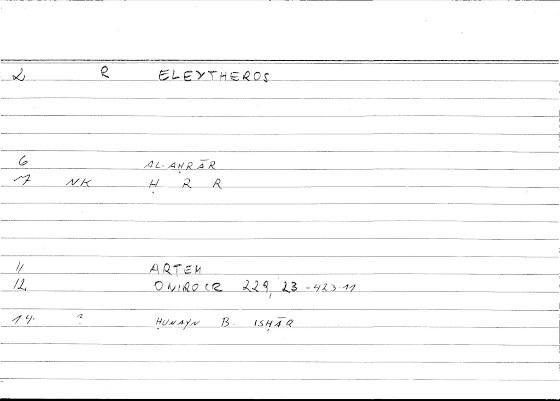 2 R ELEYTHEROS
6 AL-AḤRĀR
7 NK Ḥ R R
11 ARTEM
12. ONIROCR 229, 23 - 423-11
14. ? ḤUNAYN B. ISḤĀQ